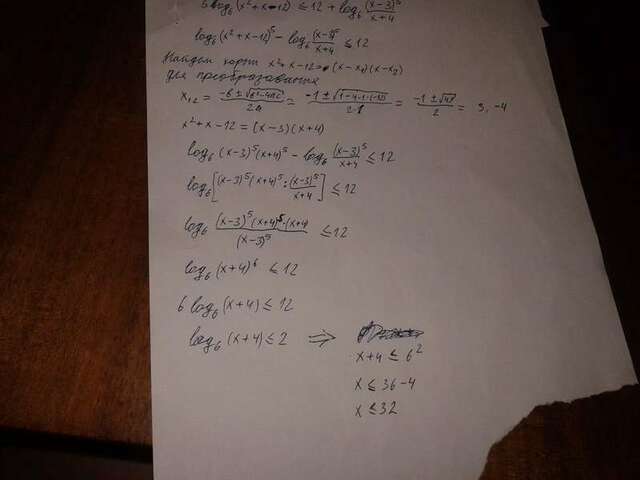 5 log₆(x²+x-12) ≤ 12 + log₆ (x-3)⁵/(x+4)
log₆(x²+x-12)⁵ - log₆ (x-3)⁵/(x+4) ≤ 12
Найдем корни x²+x-12= (x-x₁)(x-x₂)
для преобразования
x₁₂ = (-b ± √(b²-4ac))/2a = (-1 ± √(1-4·1·(-12)))/2·1 = (-1 ± √49)/2 = 3, -4
x²+x-12 = (x-3)(x+4)
log₆ (x-3)⁵(x+4)⁵ - log₆ (x-3)⁵/(x+4) ≤ 12
log₆[(x-3)⁵(x+4)⁵ : (x-3)⁵/(x+4)] ≤ 12
log₆ (x-3)⁵(x+4)⁵·(x+4)/(x-3)⁵ ≤ 12
log₆ (x+4)⁶ ≤ 12
6 log₆ (x+4) ≤ 12
log₆ (x+4) ≤ 2 ⇒
x+4 ≤ 6²
x ≤ 36-4
x ≤ 32